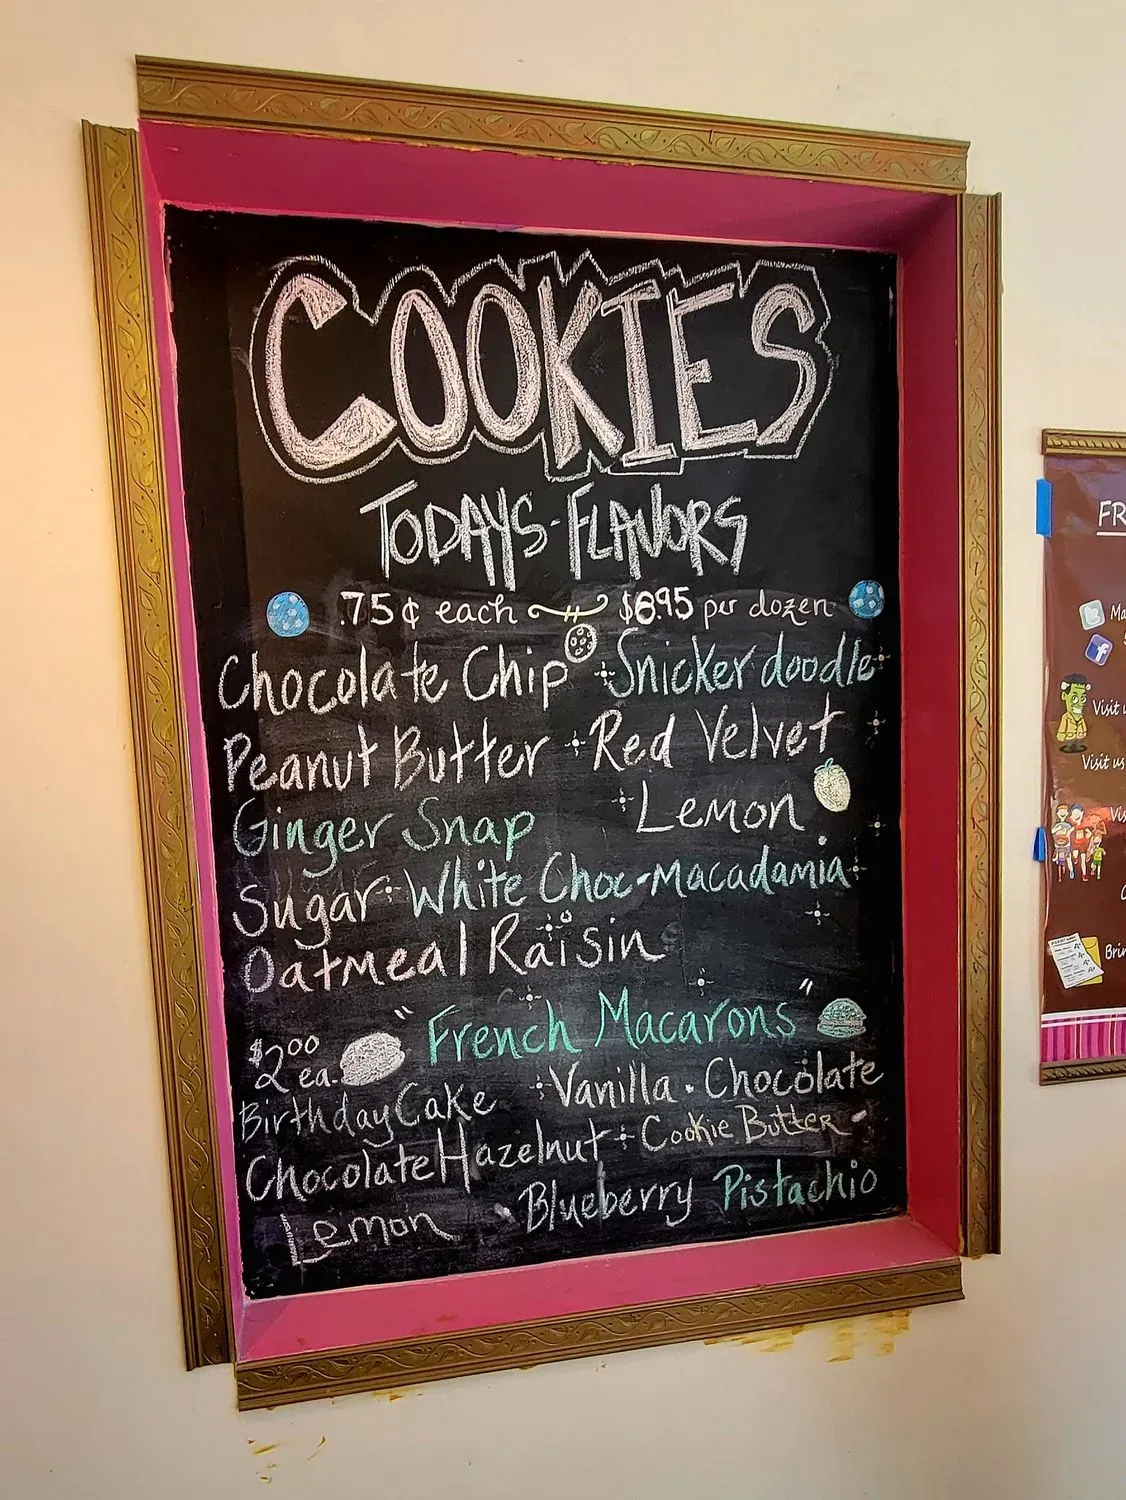 COOKIES
TODAYS-FLAVORS
.75¢ each $6.95 per dozen
Chocolate Chip Snickerdoodle
Peanut Butter Red Velvet
Ginger Snap Lemon
Sugar White Choc-Macadamia
Oatmeal Raisin
"French Macarons"
$2.00 ea.
Birthday Cake Vanilla · Chocolate
Chocolate Hazelnut Cookie Butter -
Lemon Blueberry Pistachio
FR
Visit u
Visit us